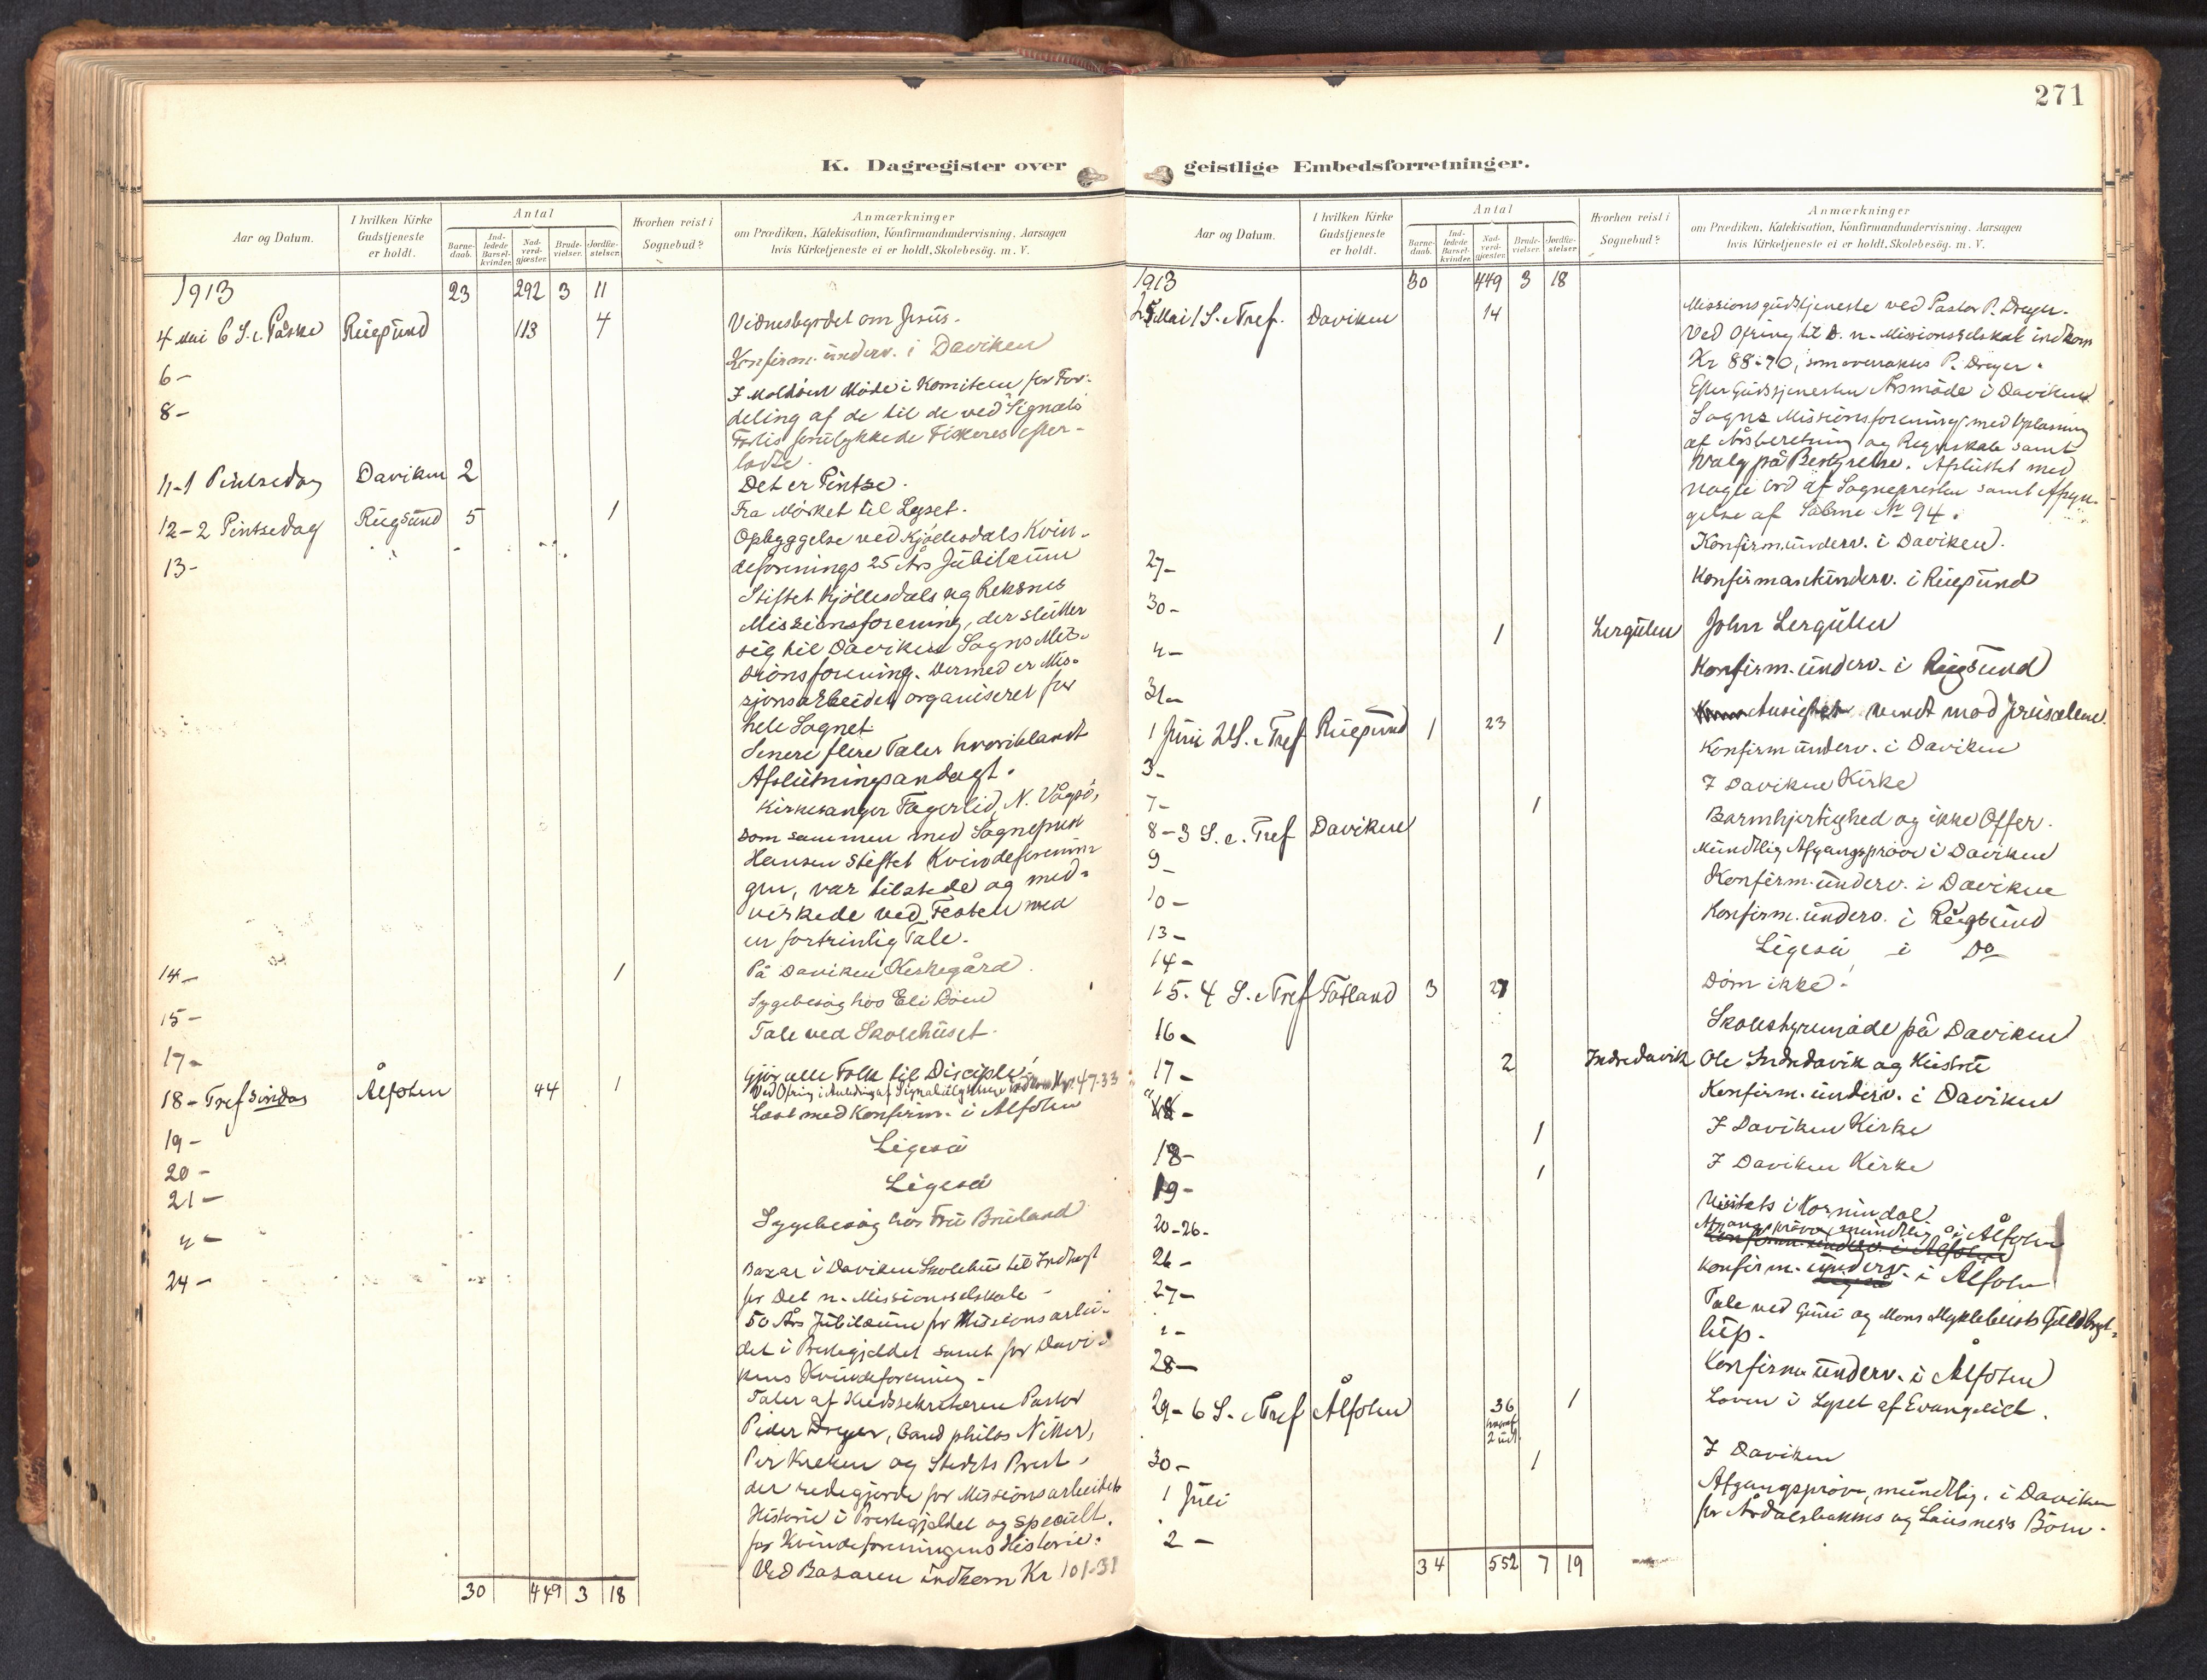 271
K. Dagregister over
geistlige Embedsforretninger.
Aar og Datum.
I hvilken Kirke
Gudstjeneste
er holdt.
Antal
Barne-
daab.
Ind-
ledede
Barsel-
kvinder.
Nad-
verd-
gjæster.
Brude-
vielser.
Jordfæ-
stelser.
Hvorhen reist i
Sognebud?
Anmærkninger
om Prædiken, Katekisation, Konfirmandundervisning, Aarsagen
hvis Kirketjeneste ei er holdt, Skolebesög. m. V.
1913 23 292 3 11
4 Mai 6 S. e. Påske Rugsund 113 4 Vidnesbyrdet om Jesus.
6- Konfirm. underv. i Daviken
8- I Moldöen Möde i Komiteen for For-
deling af de til de ved "Signals"
Forlis forulykkede Fiskeres efter-
ladte.
11-1 Pintsedag Daviken 2 Det er Pintse.
12-2 Pintsedag Rugsund 5 1 Fra Mörket til Lyset.
13- Opbyggelse ved Kjöllesdals Kvin-
deforenings 25 Års Jubilæum
Stiftet Kjöllesdals og Reksnes
Missionsforening, der slutter
sig til Daviken Sogns Mis-
sionsforening. Dermed er Mis-
sjonsarbeidet organiseret for
hele Sognet.
Senere flere Taler hvoriblandt
Afslutningsandagt.
Kirkesanger Fagerlid, N. Vågsö,
som sammen med Sogneprest
Hansen stiftet Kvindeforenin-
gen, var tilstede og med-
virkede ved Festen med
en fortrinlig Tale.
14- 1 På Daviken Kirkegård.
15- Sygebesög hos Eli Döen
17- Tale ved Skolehuset.
18- Trefsindag Ålfoten 44 1 Gjör alle Folk til Disciple!
Ved Ofring i Anledning af Signalulykken indkom Kr. 47.33
19- Læst med Konfirm. i Alfoten
20- Ligeså
21- Ligeså
"- Sygebesög hos Fru Bruland
24- Bazar i Daviken Skolehus til Indtægt
for Det n. Missionsselskab -
50 Års Jubilæum for Missionsarbei-
det i Prestegjeldet samt for Davi-
kens Kvindeforening -
Taler af Kredssekretæren Pastor
Peder Dreyer, Cand philos Nitter,
Per Kreken og Stedets Prest,
der redegjorde for Missionsarbeidets
Historie i Prestegjeldet og specielt
for Kvindeforeningens Historie.
Ved Basaren indkom Kr 101-31
30 449 3 18
Aar og Datum.
I hvilken Kirke
Gudstjeneste
er holdt.
Antal
Barne-
daab.
Ind-
ledede
Barsel-
kvinder.
Nad-
verd-
gjæster.
Brude-
vielser.
Jordfæ-
stelser.
Hvorhen reist i
Sognebud?
Anmærkninger
om Prædiken, Katekisation, Konfirmandundervisning, Aarsagen
hvis Kirketjeneste ei er holdt, Skolebesög. m. V.
1913 30 449 3 18
25 Mai 1 S. e Tref. Daviken 14 Missionsgudstjeneste ved Pastor P. Dreyer.
Ved Ofring til D. n. Missionsselskab indkom
Kr 88-70, som overraktes P. Dreyer.
Efter Gudstjenesten Årsmöde i Daviken
Sogns Missionsforening med Oplæsning
af Årsberetning og Regnskab samt
Valg på Bestyrelse. Afsluttet med
nogle ord af Sognepresten samt Afsyn-
gelse af Salme No 94.
27- Konfirm. underv. i Daviken.
30- Konfirmantunderv. i Rugsund
"- 1 Lergulen John Lergulen
31- Konfirm. underv. i Rugsund
1 Juni 2 S. e Tref Rugsund 1 23 Ansigtet vendt mod Jerusalem.
3- Konfirm underv. i Daviken
7- 1 I Daviken Kirke
8-3 S. e. Tref Daviken Barmhjertighed og ikke Offer.
9- Mundtlig Afgangspröve i Daviken
10- Konfirm. underv. i Daviken
13- Konfirm. underv. i Rugsund
14- Ligeså i Do
15. 4 S. e Tref Totland 3 27 Döm ikke!
16- Skolestyremöde på Daviken
17- 2 Indredavik Ole Indredavik og Hustru
"- Konfirm. underv. i Daviken
18- 1 I Daviken Kirke
19- 1 I Daviken Kirke
20-26- Visitats i Hornindal
26- Afgangspröve, mundtlig, i Ålfoten
27- Konfirm. underv. i Ålfoten
"- Tale ved Guri og Mons Myklebusts Guldbryl-
lup.
28- Konfirm underv. i Ålfoten
29- 6 S. e Tref Ålfoten 36 1 Loven i Lyset af Evangeliet.
hvoraf
2 ud.
30- 1 I Daviken
1 Juli Afgangspröve, mundtlig, i Daviken
2- for Årdalsbakkes og Lausnes's Börn.
34 552 7 19